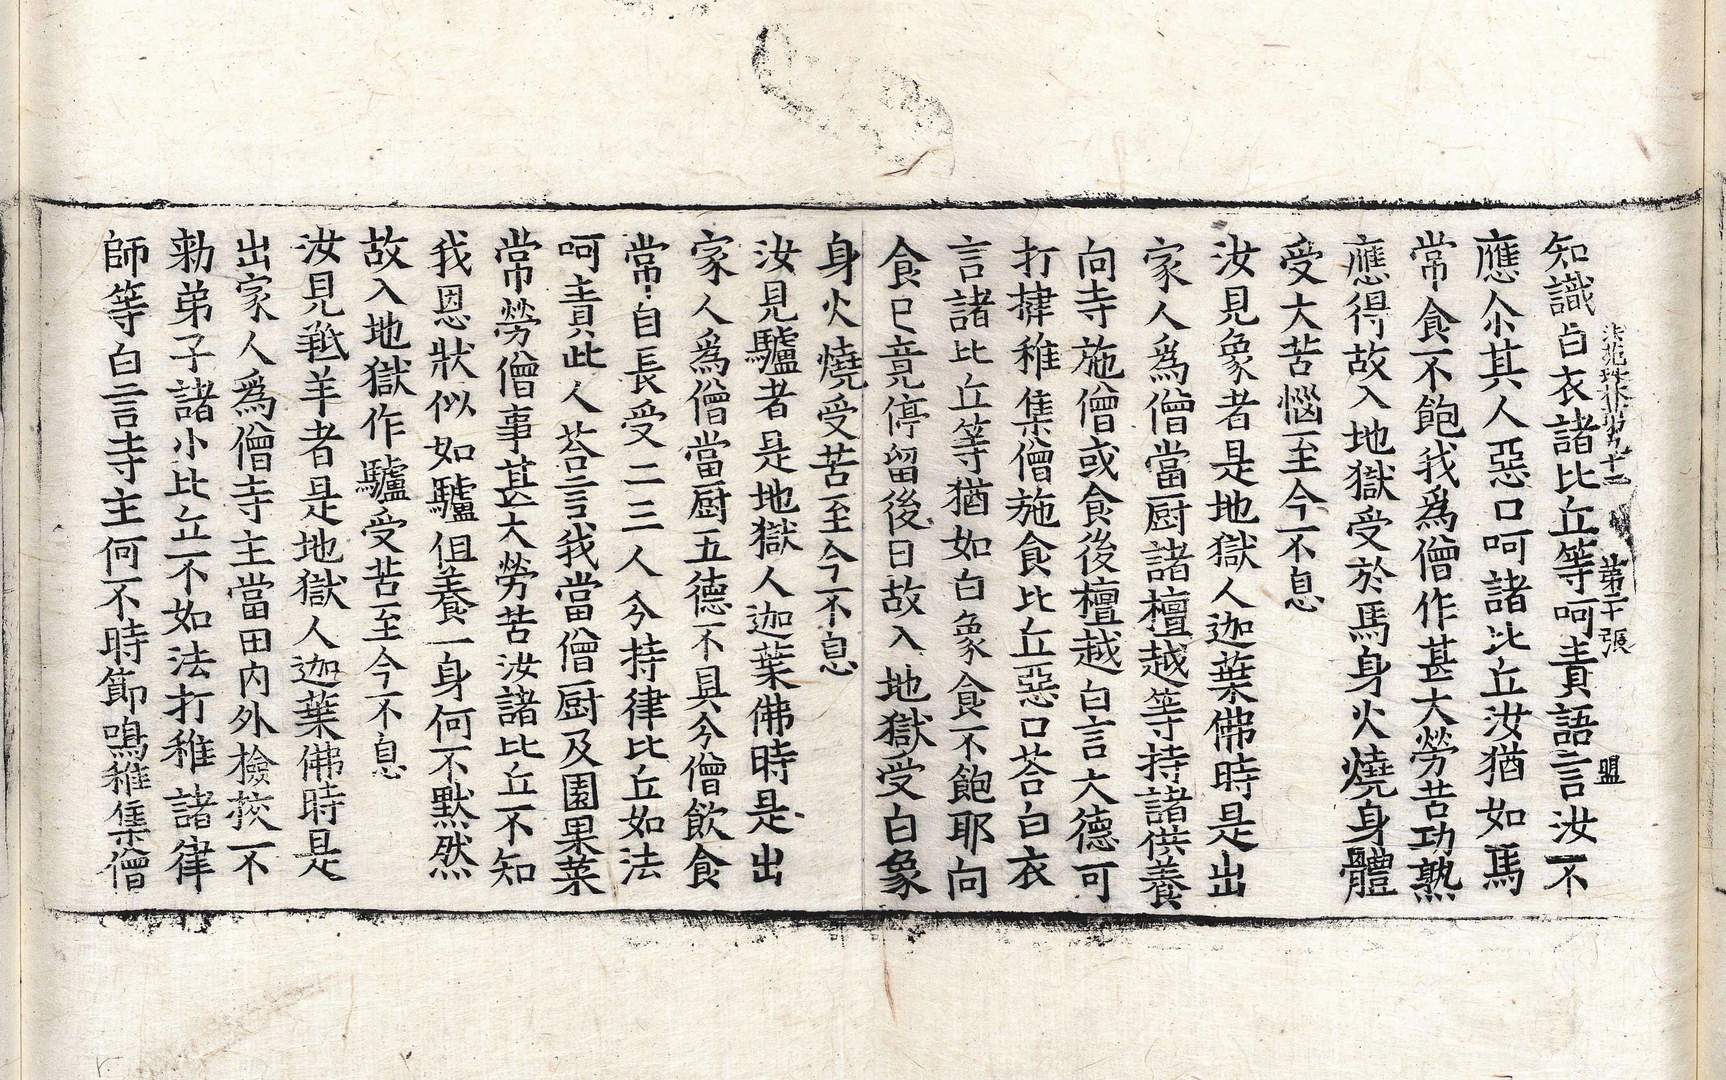 法苑珠林第九十二 第二十張 盟
知識白衣諸比丘等呵責語言汝不
應尒其人惡口呵諸比丘汝猶如馬
常食不飽我爲僧作甚大勞苦功熟
應得故入地獄受於馬身火燒身體
受大苦惱至今不息
汝見象者是地獄人迦葉佛時是出
家人爲僧當厨諸檀越等持諸供養
向寺施僧或食後檀越白言大德可
打揵稚集僧施食比丘惡口荅白衣
言諸比丘等猶如白象食不飽耶向
食已竟停留後日故入地獄受白象
身火燒受苦至今不息
汝見驢者是地獄人迦葉佛時是出
家人爲僧當厨五德不具今僧飲食
常自長受二三人分持律比丘如法
呵責此人荅言我當僧厨及園果菜
常勞僧事甚大勞苦汝諸比丘不知
我恩狀似如驢但養一身何不默然
故入地獄作驢受苦至今不息
汝見羝羊者是地獄人迦葉佛時是
出家人爲僧寺主當田内外檢挍不
勑弟子諸小比丘不如法打稚諸律
師等白言寺主何不時節鳴稚集僧